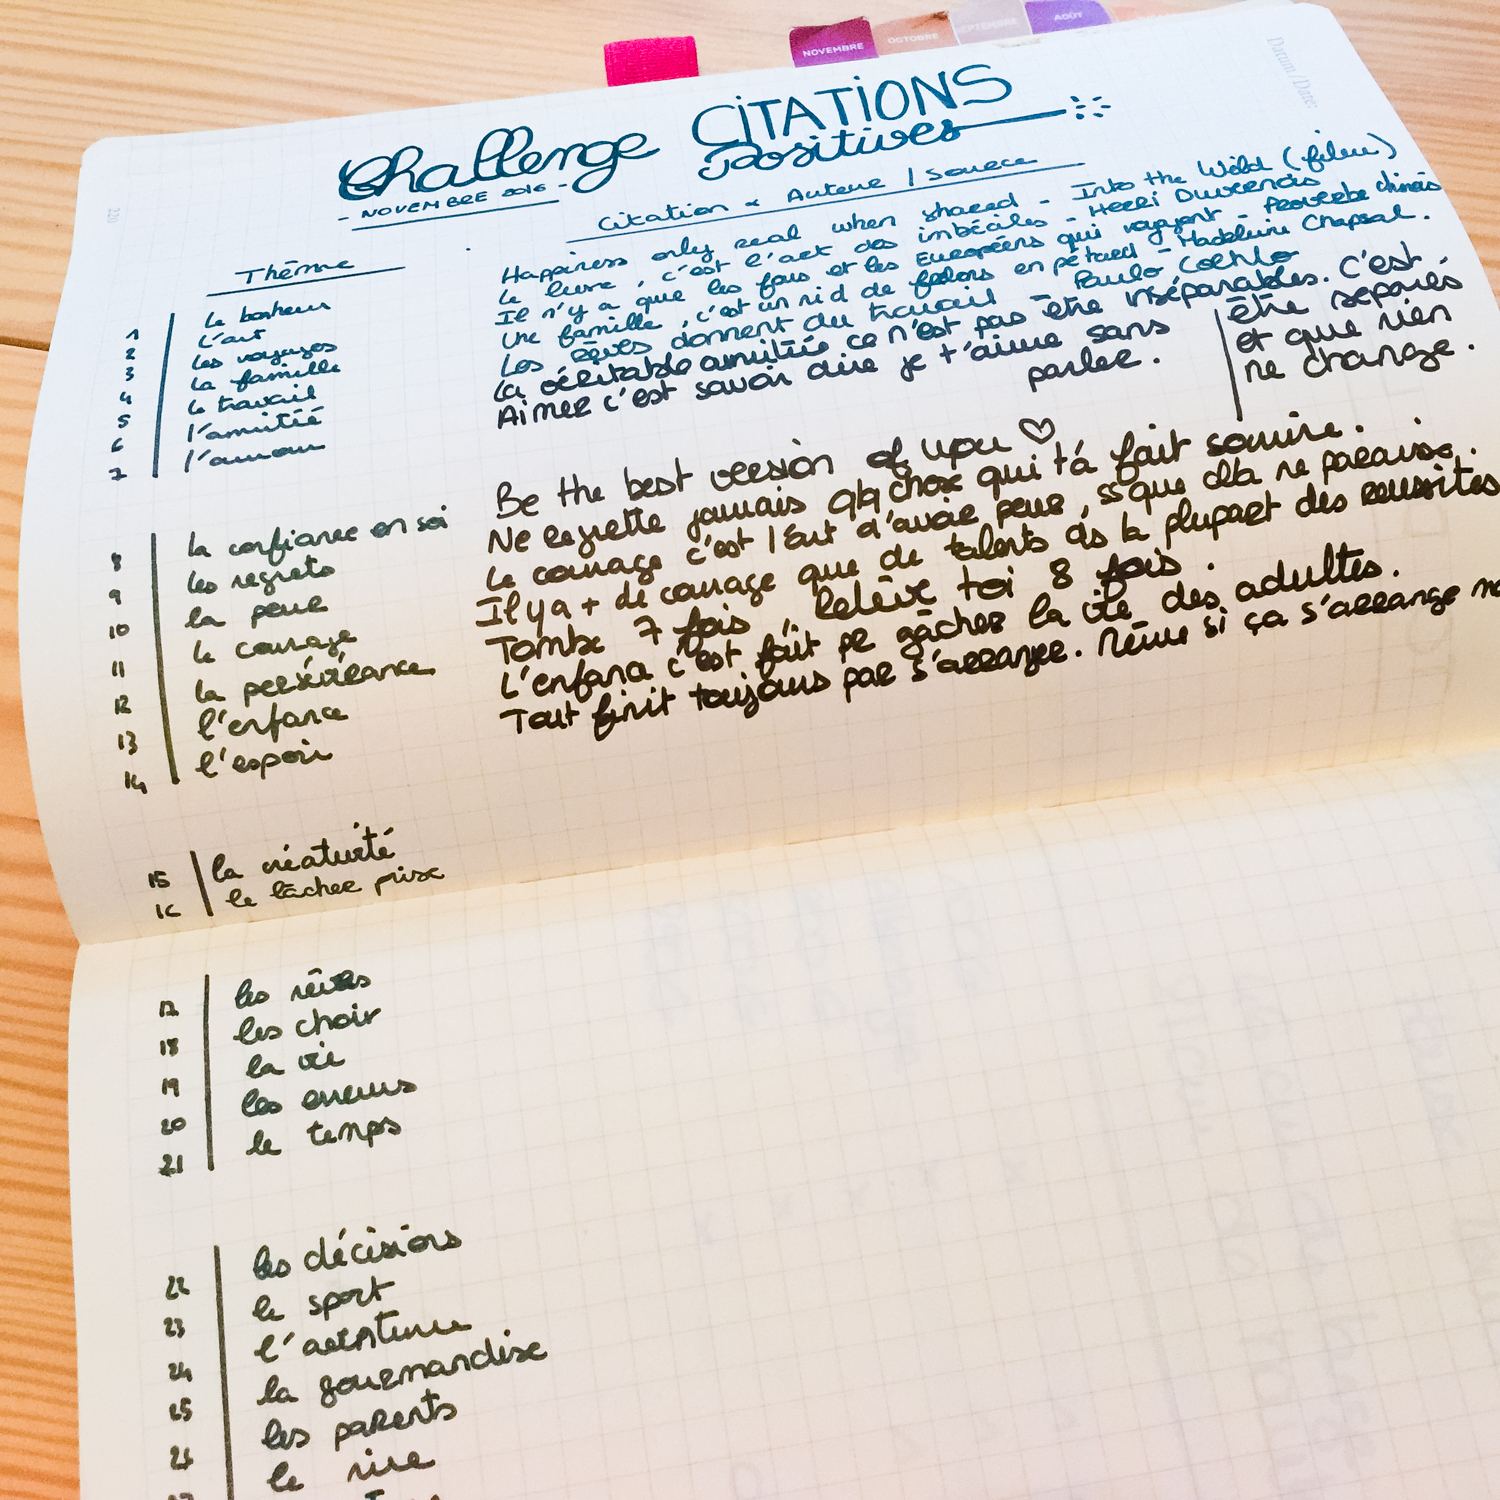 NOVEMBRE OCTOBRE SEPTEMBRE AOÛT
Datum/Date:
220
Challenge CITATIONS
Positives
- NOVEMBRE 2016 -
Thème
Citation & Auteur / Source
1 le bonheur Happiness only real when shared - Into the Wild (film)
2 l'art Le livre, c'est l'art des imbéciles - Henri Duvernois
3 les voyages Il n'y a que les fous et les Européens qui voyagent - Proverbe chinois
4 la famille Une famille, c'est un nid de en pétard - Madeleine Chapsal.
5 le travail Les rêves donnent du travail - Paulo Coehlo
6 l'amitié La véritable amitiée ce n'est pas être inséparables. C'est
être séparés
et que rien
ne change.
7 l'amour Aimer c'est savoir dire je t'aime sans
parler.
8 la confiance en soi Be the best version of you ♡
9 les regrets Ne regrette jamais qq chose qui t'a fait sourire.
10 la peur Le courage c'est l'art d'avoir peur, ss que cela ne paraisse.
11 le courage Il y a + de courage que de talents ds la plupart des reussites
12 la persévérance Tombe 7 fois, Relève toi 8 fois.
13 l'enfance L'enfance c'est fait pr gâcher la vie des adultes.
14 l'espoir Tout finit toujours par s'arranger. Même si ça s'arrange
15 la créativité
16 le lâcher prise
17 les rêves
18 les choix
19 la vie
20 les erreurs
21 le temps
22 les décisions
23 le sport
24 l'aventure
25 la gourmandise
26 les parents
27 le rire